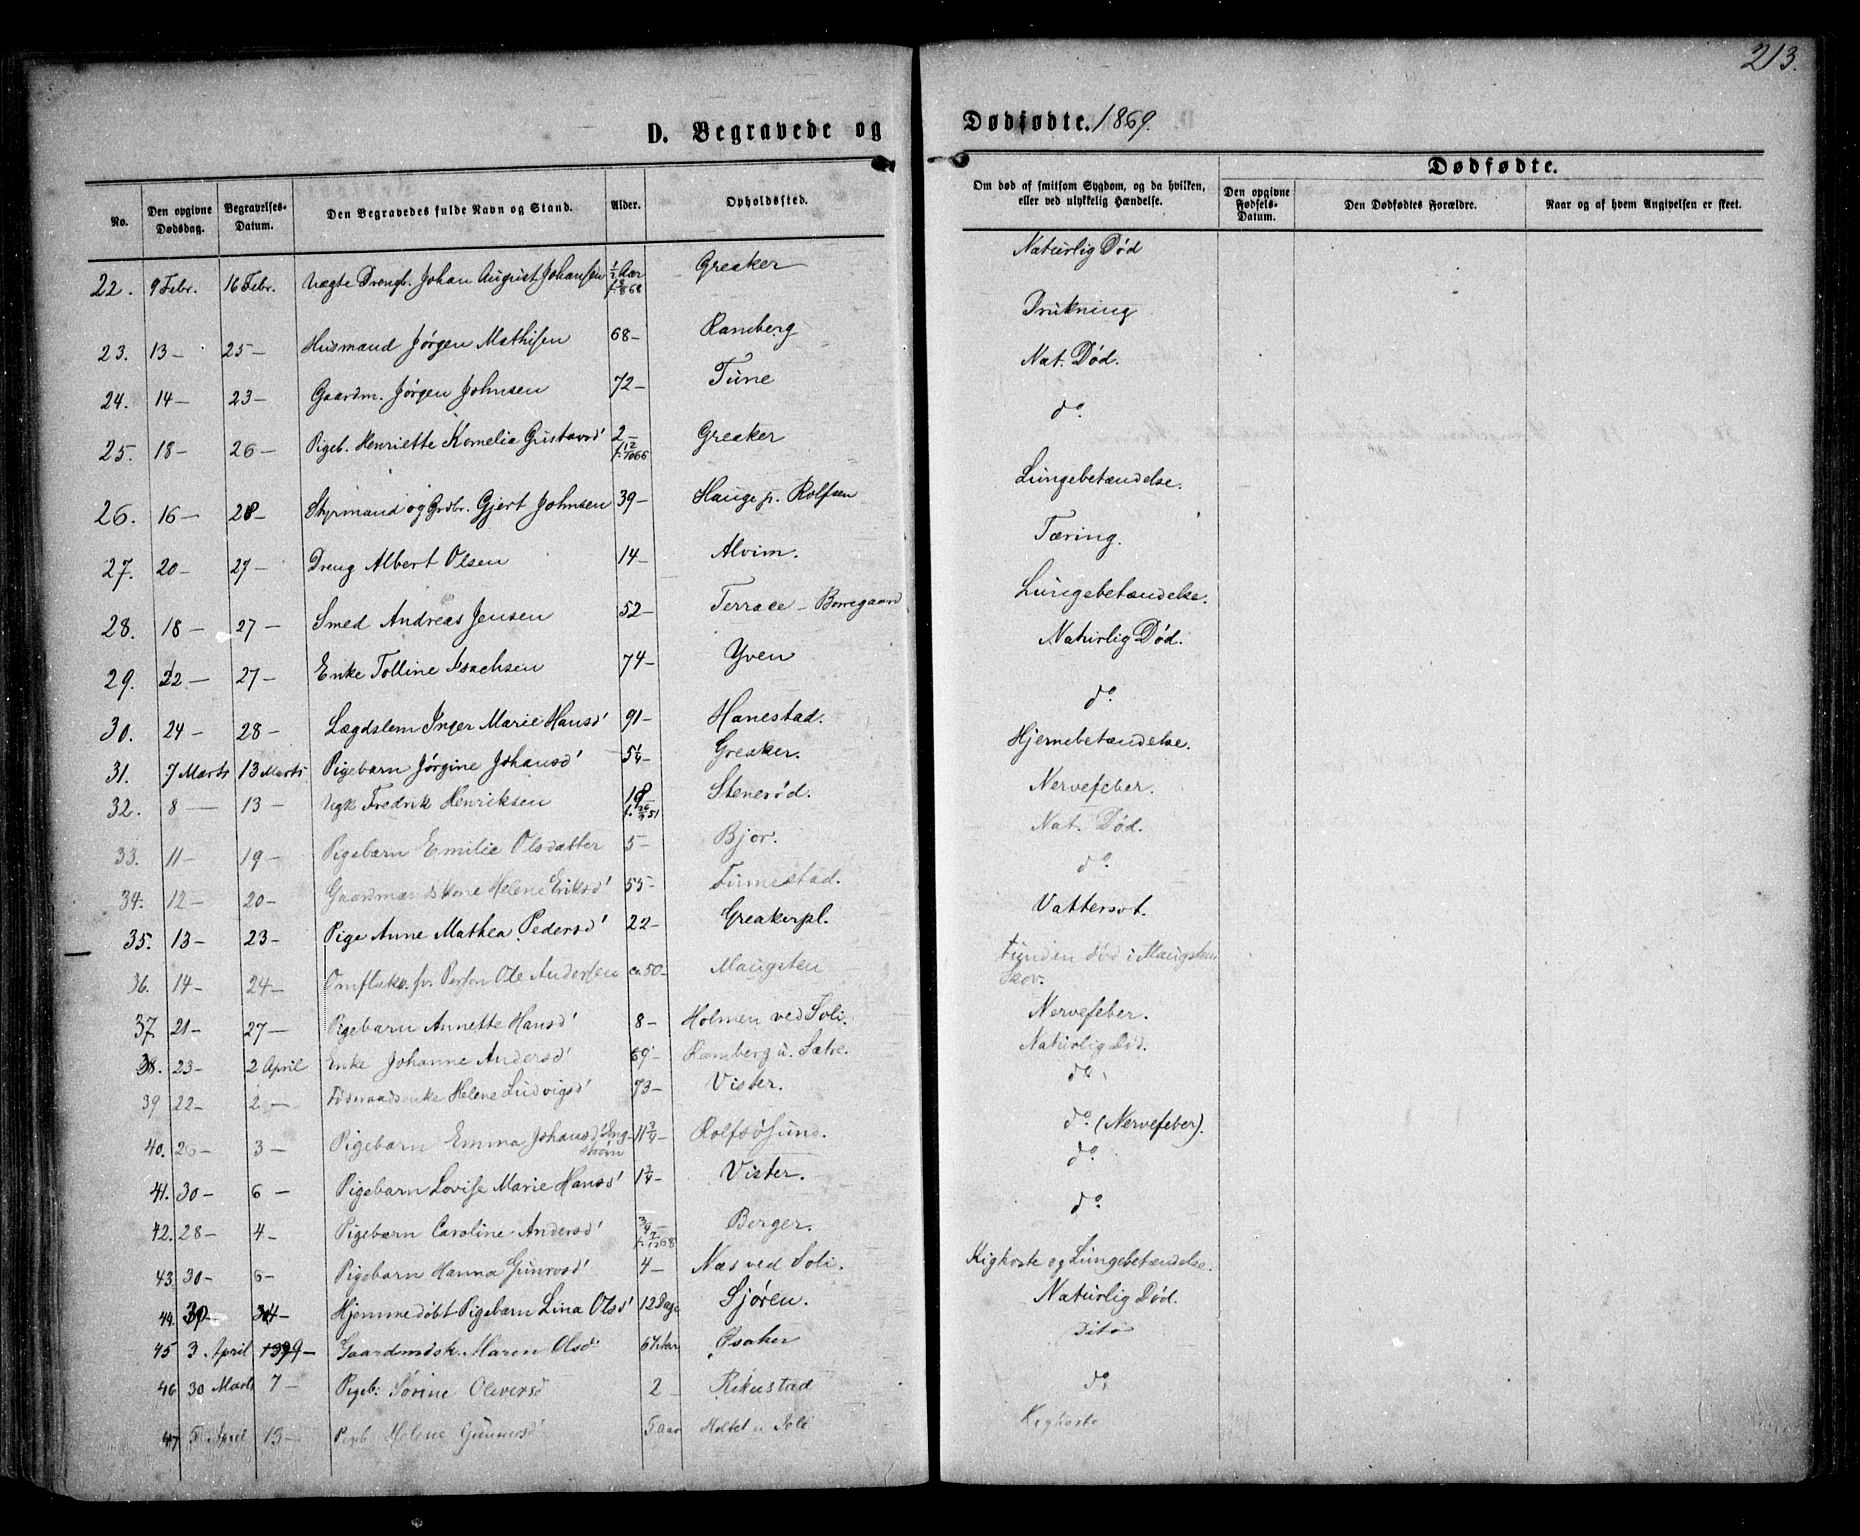 213.
D. Begravede og Dødfødte. 1869.
No. Den opgivne Dødsdag. Begravelses-Datum. Den Begravedes fulde Navn og Stand. Alder. Opholdssted. Om død af smitsom Sygdom, og da hvilken, eller ved ulykkelig Hændelse. Dødfødte. Den opgivne Fødsels-Datum. Den Dødfødtes Forældre. Naar og af hvem Angivelsen er skeet.
22. 9 Febr. 16 Febr. Uægte Drengb. Johan August Johansen 1/2 Aar Greaker Naturlig Død
23. 13 — 25 — Husmand Jørgen Mathisen 68 — Ramberg Drukning
24. 14 — 23 — Gaardm. Jørgen Johnsen 72 — Tune Nat. Død.
25. 18 — 26 — Pigeb. Henriette Kornelia Gustavsd' 2 — f. 12/10 66 Greaker do.
26. 16 — 28 — Styrmand og Grdbr. Gjert Johnsen 39 — Hauge p. Rolfsøen Lungebetændelse.
27. 20 — 27 — Dreng Albert Olsen 14 — Alvim. Tæring.
28. 18 — 27 — Smed Andreas Jensen 52 — Terrace — Borregaard Lungebetændelse.
29. 22 — 27 — Enke Tolline Isachsen 74 — Yven Naturlig Død.
30. 24 — 28 — Lægdslem Inger Marie Hansd' 91 — Hanestad. do.
31. 7 Marts 13 Marts. Pigebarn Jørgine Johansd' 5 1/4 — Greaker. Hjernebetændelse.
32. 8 — 13 — Ugk Fredrik Henriksen 18 Stenerød. Nervefeber.
33. 11 — 19 — Pigebarn Emilie Olsdatter 5 — Bjor. Nat. Død.
34. 12 — 20 — Gaardmandskone Helene Eriksd' 55 — Tunestad. do.
35. 13 — 23 — Pige Anne Mathea Pedersd' 22 — Greakerpl. Vattersot.
36. 14 — 24 — Omfl. Person Ole Andersen ca 50 — Maugsten Funden død i Maugsten Skov.
37. 21 — 27 — Pigebarn Annette Hansd' 8 — Holmen ved Soli. Nervefeber.
38. 23 — 2 April Enke Johanne Andersd' 69 — Ramberg u. Sætre. Naturlig Død.
39 22 — 2 — Føderaadsenke Helene Ludvigsd' 73 — Vister. do.
40. 26 — 3 — Pigebarn Emma Johansd' Engstrøm 11 3/4 — Rolfsøsund. do. (Nervefeber).
41. 30 — 6 — Pigebarn Lovise Marie Hansd' 1 3/4 — Vister. do.
42. 28 — 4 — Pigebarn Caroline Andersd' 3/4 — Berger. do.
43. 30 — 6 — Pigebarn Hanna Gunersd' 4 — Næs ved Soli. Kighoste og Lungebetændelse.
44. 30 — 4 — Hjemmedøbt Pigebarn Lina Olsd' 12 Dage Sjøren. Naturlig Død.
45 3 April 9 — Gaardmdsk. Maren Olsd' 67 Aar Øsaker Dito
46 30 Marts 7 — Pigeb: Sørine Oliversd 2 — Rikustad do.
47 5 April 13 — Pigeb. Helene Gunnersd' 5 Aar Holtet u Soli Kighoste